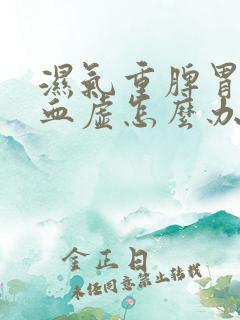 濕氣重脾胃
血虛怎麼办
金正日
未经同意禁止转载